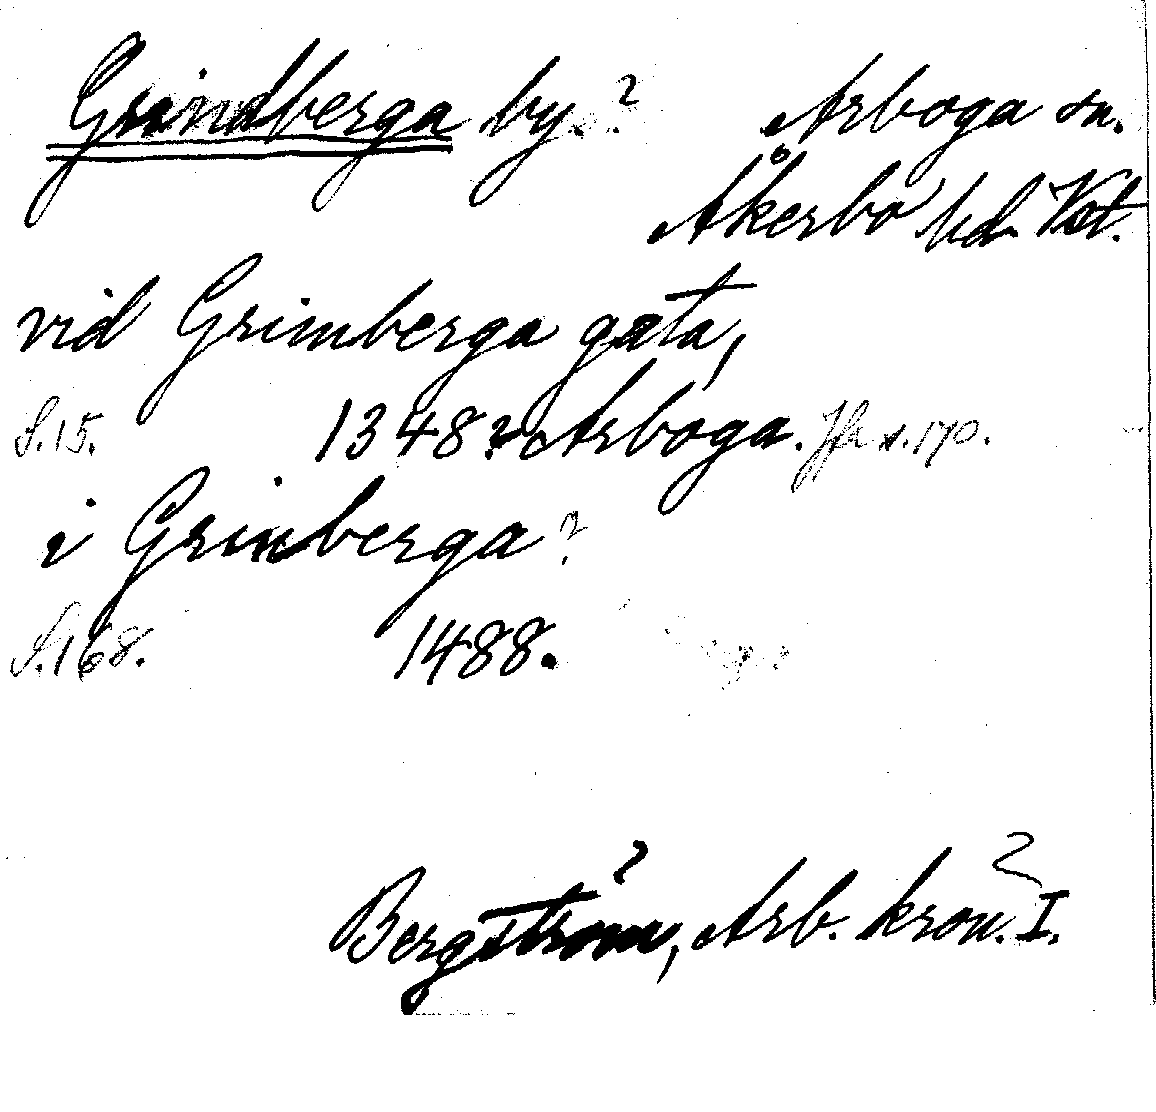 Grindberga by? Arboga sn.
Åkerbo hd Vstl.
vid Grimberga gata,
S.15. 1348 Arboga. Jfr s.170.
i Grinberga?
S.168. 1488.
Bergström, Arb. krön. I.